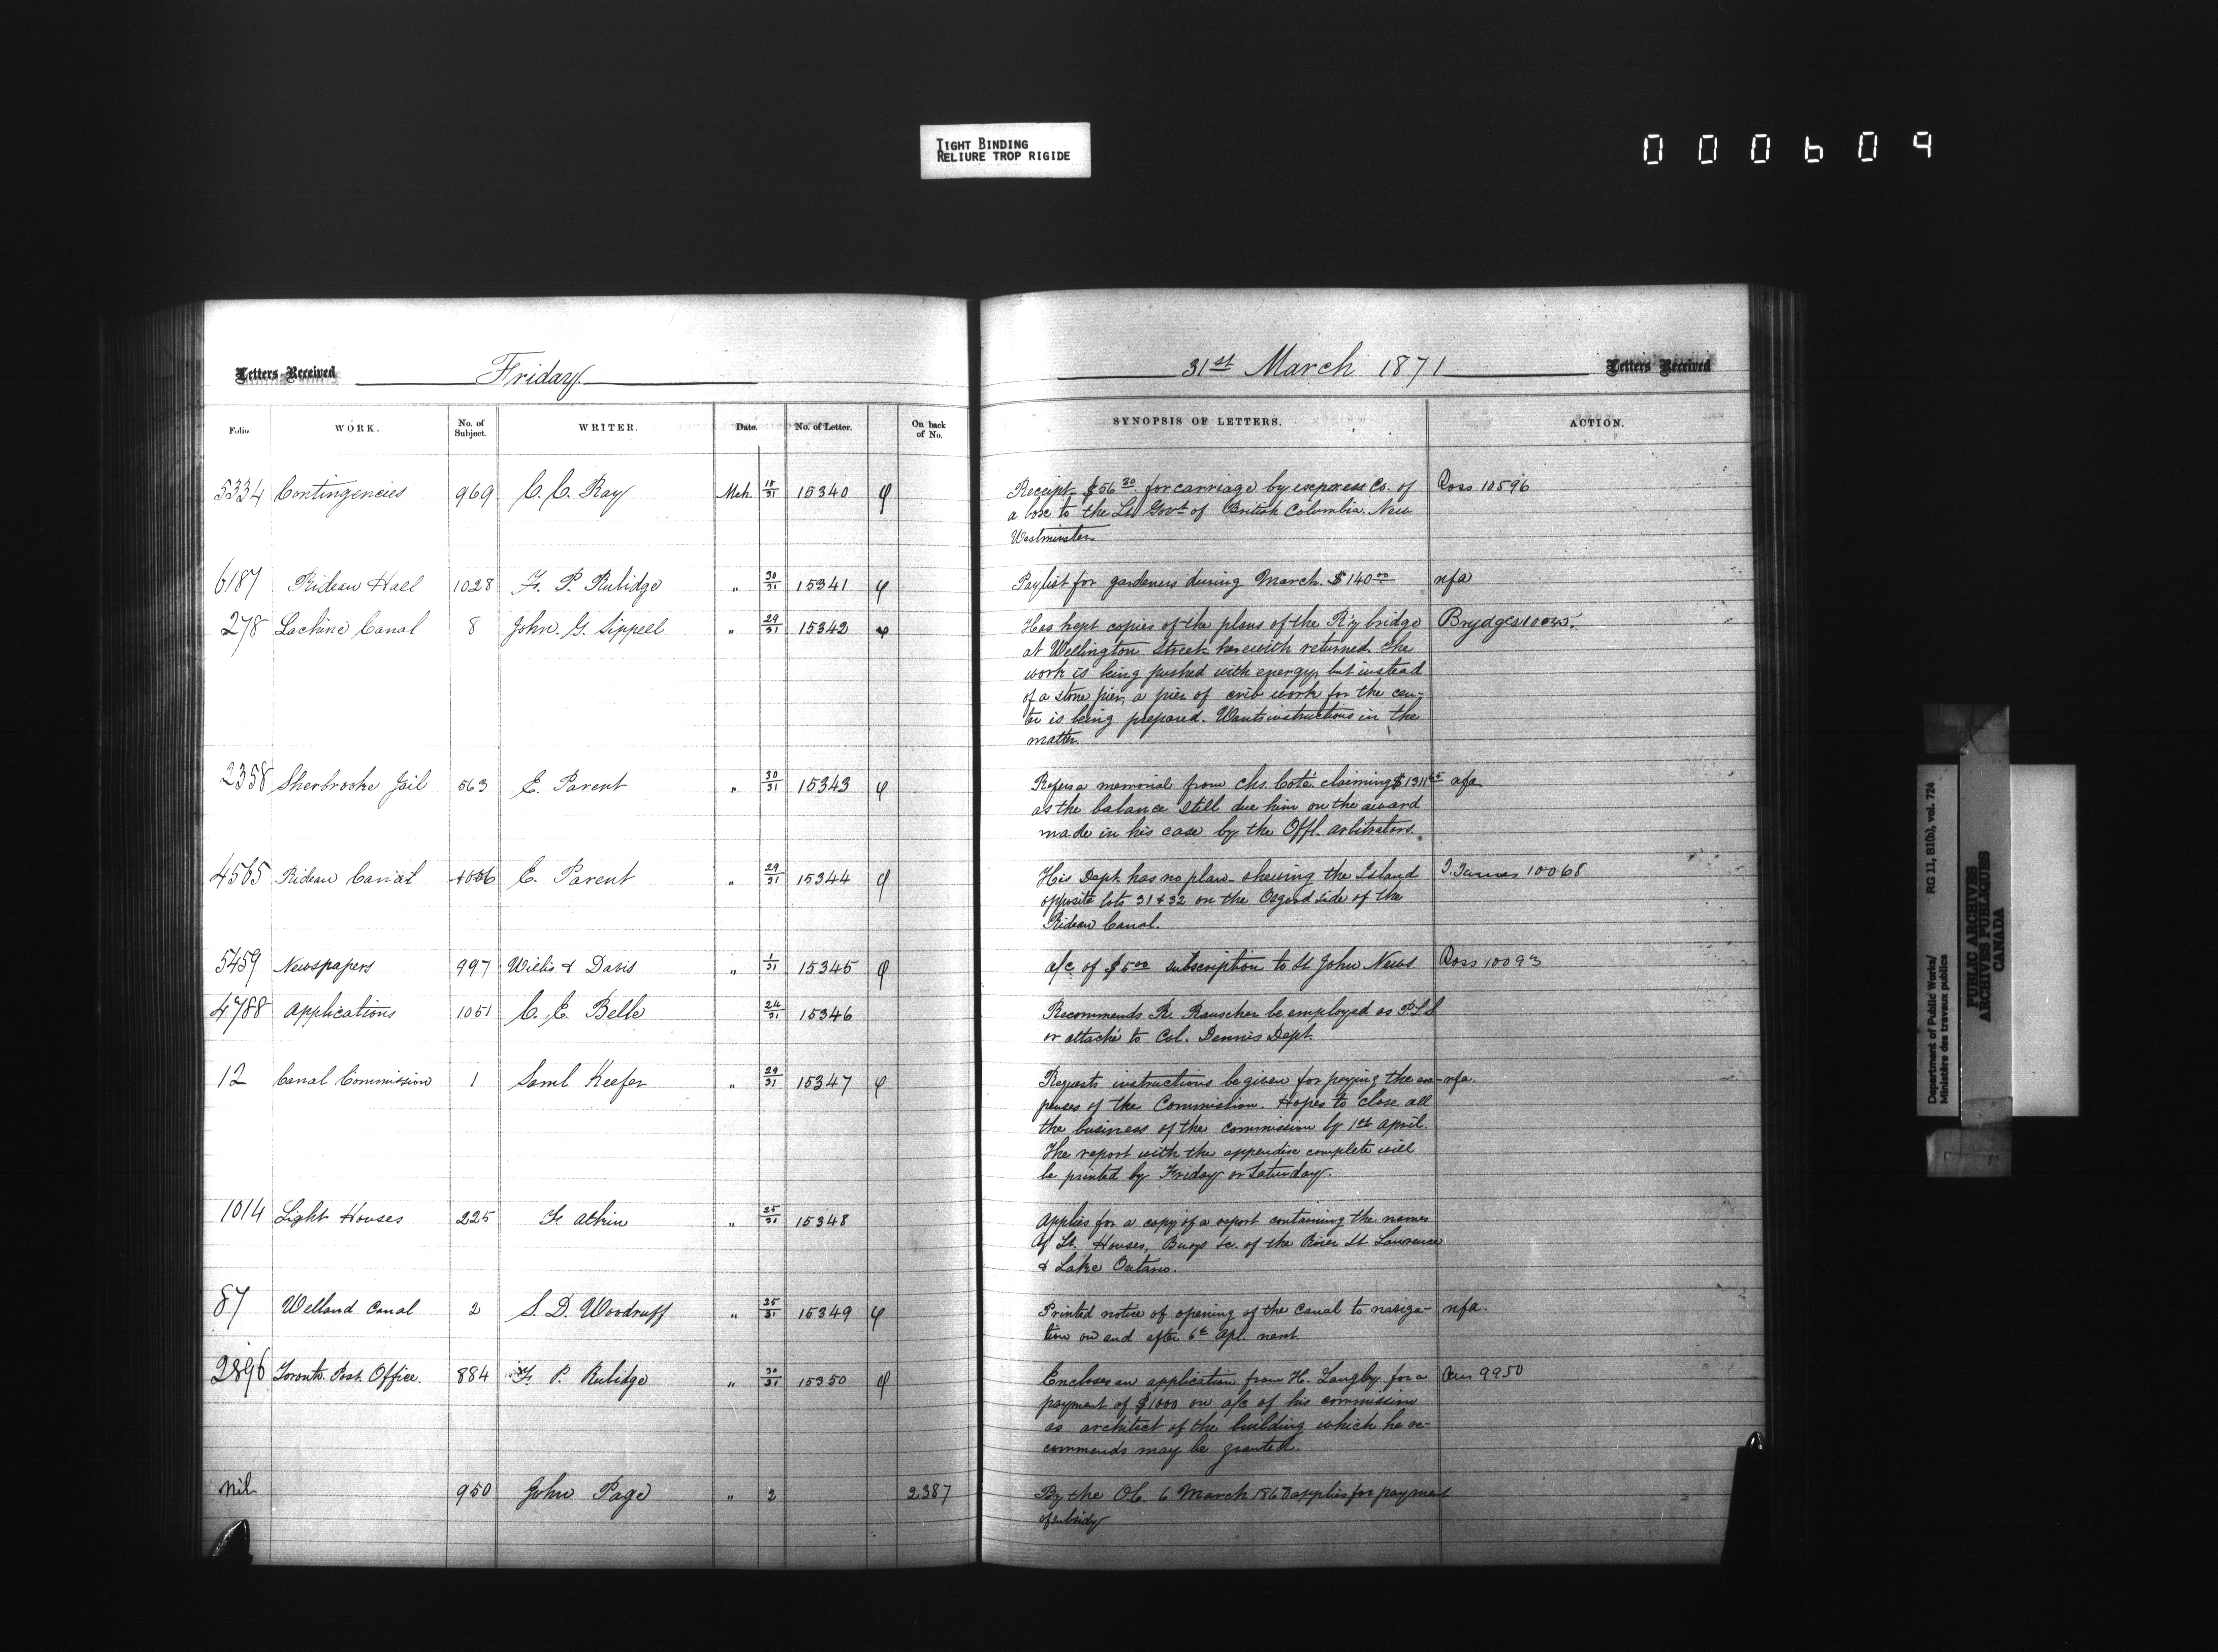 TIGHT BINDING
RELIURE TROP RIGIDE
000609
Letters Received Friday 31st March 1871 Letters Received
Folio. WORK. No. of Subject. WRITER. Date. No. of Letter. On back of No. SYNOPSIS OF LETTERS. ACTION.
5334 Contingencies 969 C. C. Ray Mch 18/31 15340 φ Receipt $56 30 for carriage by express Co. of Ross 10596
a box to the Lt Govt of British Columbia. New
Westminster.
6187 Rideau Hall 1028 F. P. Rubidge " 30/31 15341 φ Paylist for gardeners during March. $140 00 nfa
278 Lachine Canal 8 John. G. Sippell " 29/31 15342 φ Has kept copies of the plans of the R'y bridge Brydges
at Wellington Street herewith returned. The
work is being pushed with energy, but instead
of a stone pier, a pier of crib work for the cen-
tre is being prepared. Wants instructions in the
matter.
2358 Sherbrooke Jail 563 E. Parent " 30/31 15343 φ Refers a memorial from Chs. Coté claiming $1311 nfa
as the balance still due him on the award
made in his case by the Offl. arbitrators.
4565 Rideau Canal E. Parent " 29/31 15344 φ His Dept. has no plan shewing the Island 10068
opposite lots 31 & 32 on the Osgood side of the
Rideau Canal.
5459 Newspapers 997 Willis & Davis " 1/31 15345 φ a/c of $5 00 subscription to St John News Ross 10093
4788 Applications 1051 C. E. Belle 24/31 15346 Recommends R. Rauscher be employed as P.L.S
or attaché to Col. Dennis Dept.
12 Canal Commission 1 Saml Keefer " 29/31 15347 φ Requests instructions be given for paying the ex- nfa.
penses of the Commission. Hopes to close all
the business of the commission by 1st April.
The report with the appendix complete will
be printed by Friday or Saturday.
1014 Light Houses 225 F. Atkin " 25/31 15348 Applies for a copy of a report containing the names
of Lt. Houses, Buoys &c. of the River St Lawrence
& Lake Ontario.
87 Welland Canal 2 S. D. Woodruff " 25/31 15349 φ Printed notice of opening of the canal to naviga- nfa.
tion on and after 6th Apl. next.
2896 Toronto Post Office. 884 F. P. Rubidge " 30/31 15350 φ Encloses an application from H. Langley for a 9950
payment of $1000 on a/c of his commission
as architect of the building which he re-
commends may be granted.
nil 950 John Page " 2 2387 By the O.C. 6 March applies for payment
of subsidy
Department of Public Works/ RG 11, B1(b), vol. 724
Ministère des travaux publics
PUBLIC ARCHIVES
ARCHIVES PUBLIQUES
CANADA